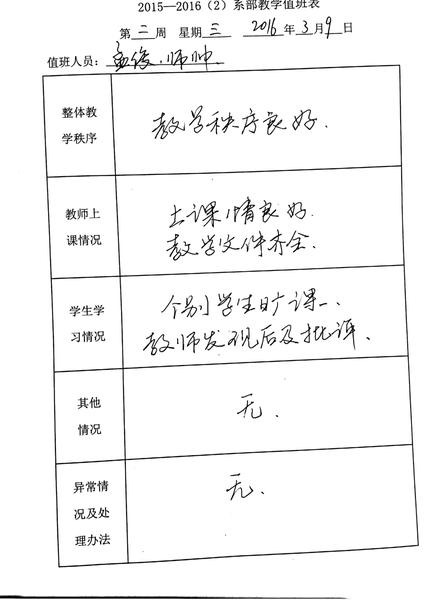 2015—2016（2）系部教学值班表
第 二 周 星期 三 2016 年 3 月 9 日
值班人员：孟俊、师帅.
整体教
学秩序
教学秩序良好.
教师上
课情况
上课情良好.
教学文件齐全.
学生学
习情况
个别学生旷课、
教师发现后及批评、
其他
情况
无、
异常情
况及处
理办法
无、